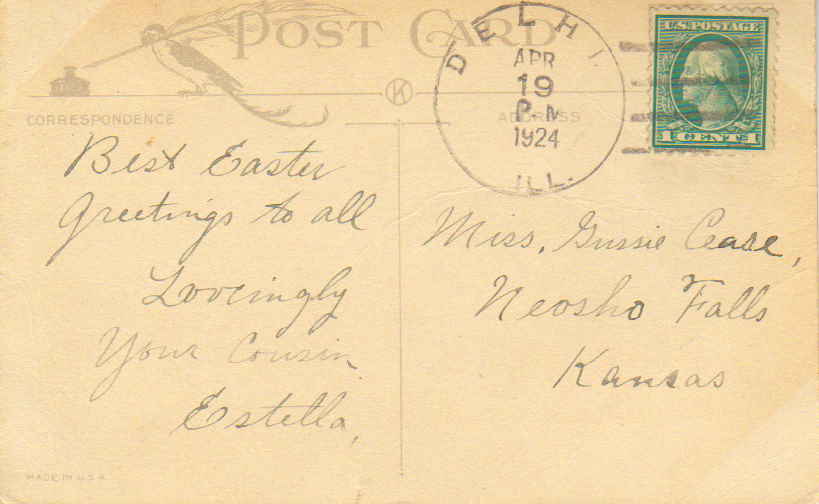 POST CARD
DELHI
APR
19
P.M
1924
ILL.
U.S. POSTAGE
1 CENT 1
K
CORRESPONDENCE
ADDRESS
Best Easter
Greetings to all
Loveingly
Your Cousin
Estella,
Miss, Gussie Cease,
Neosho Falls
Kansas
MADE IN U.S.A.